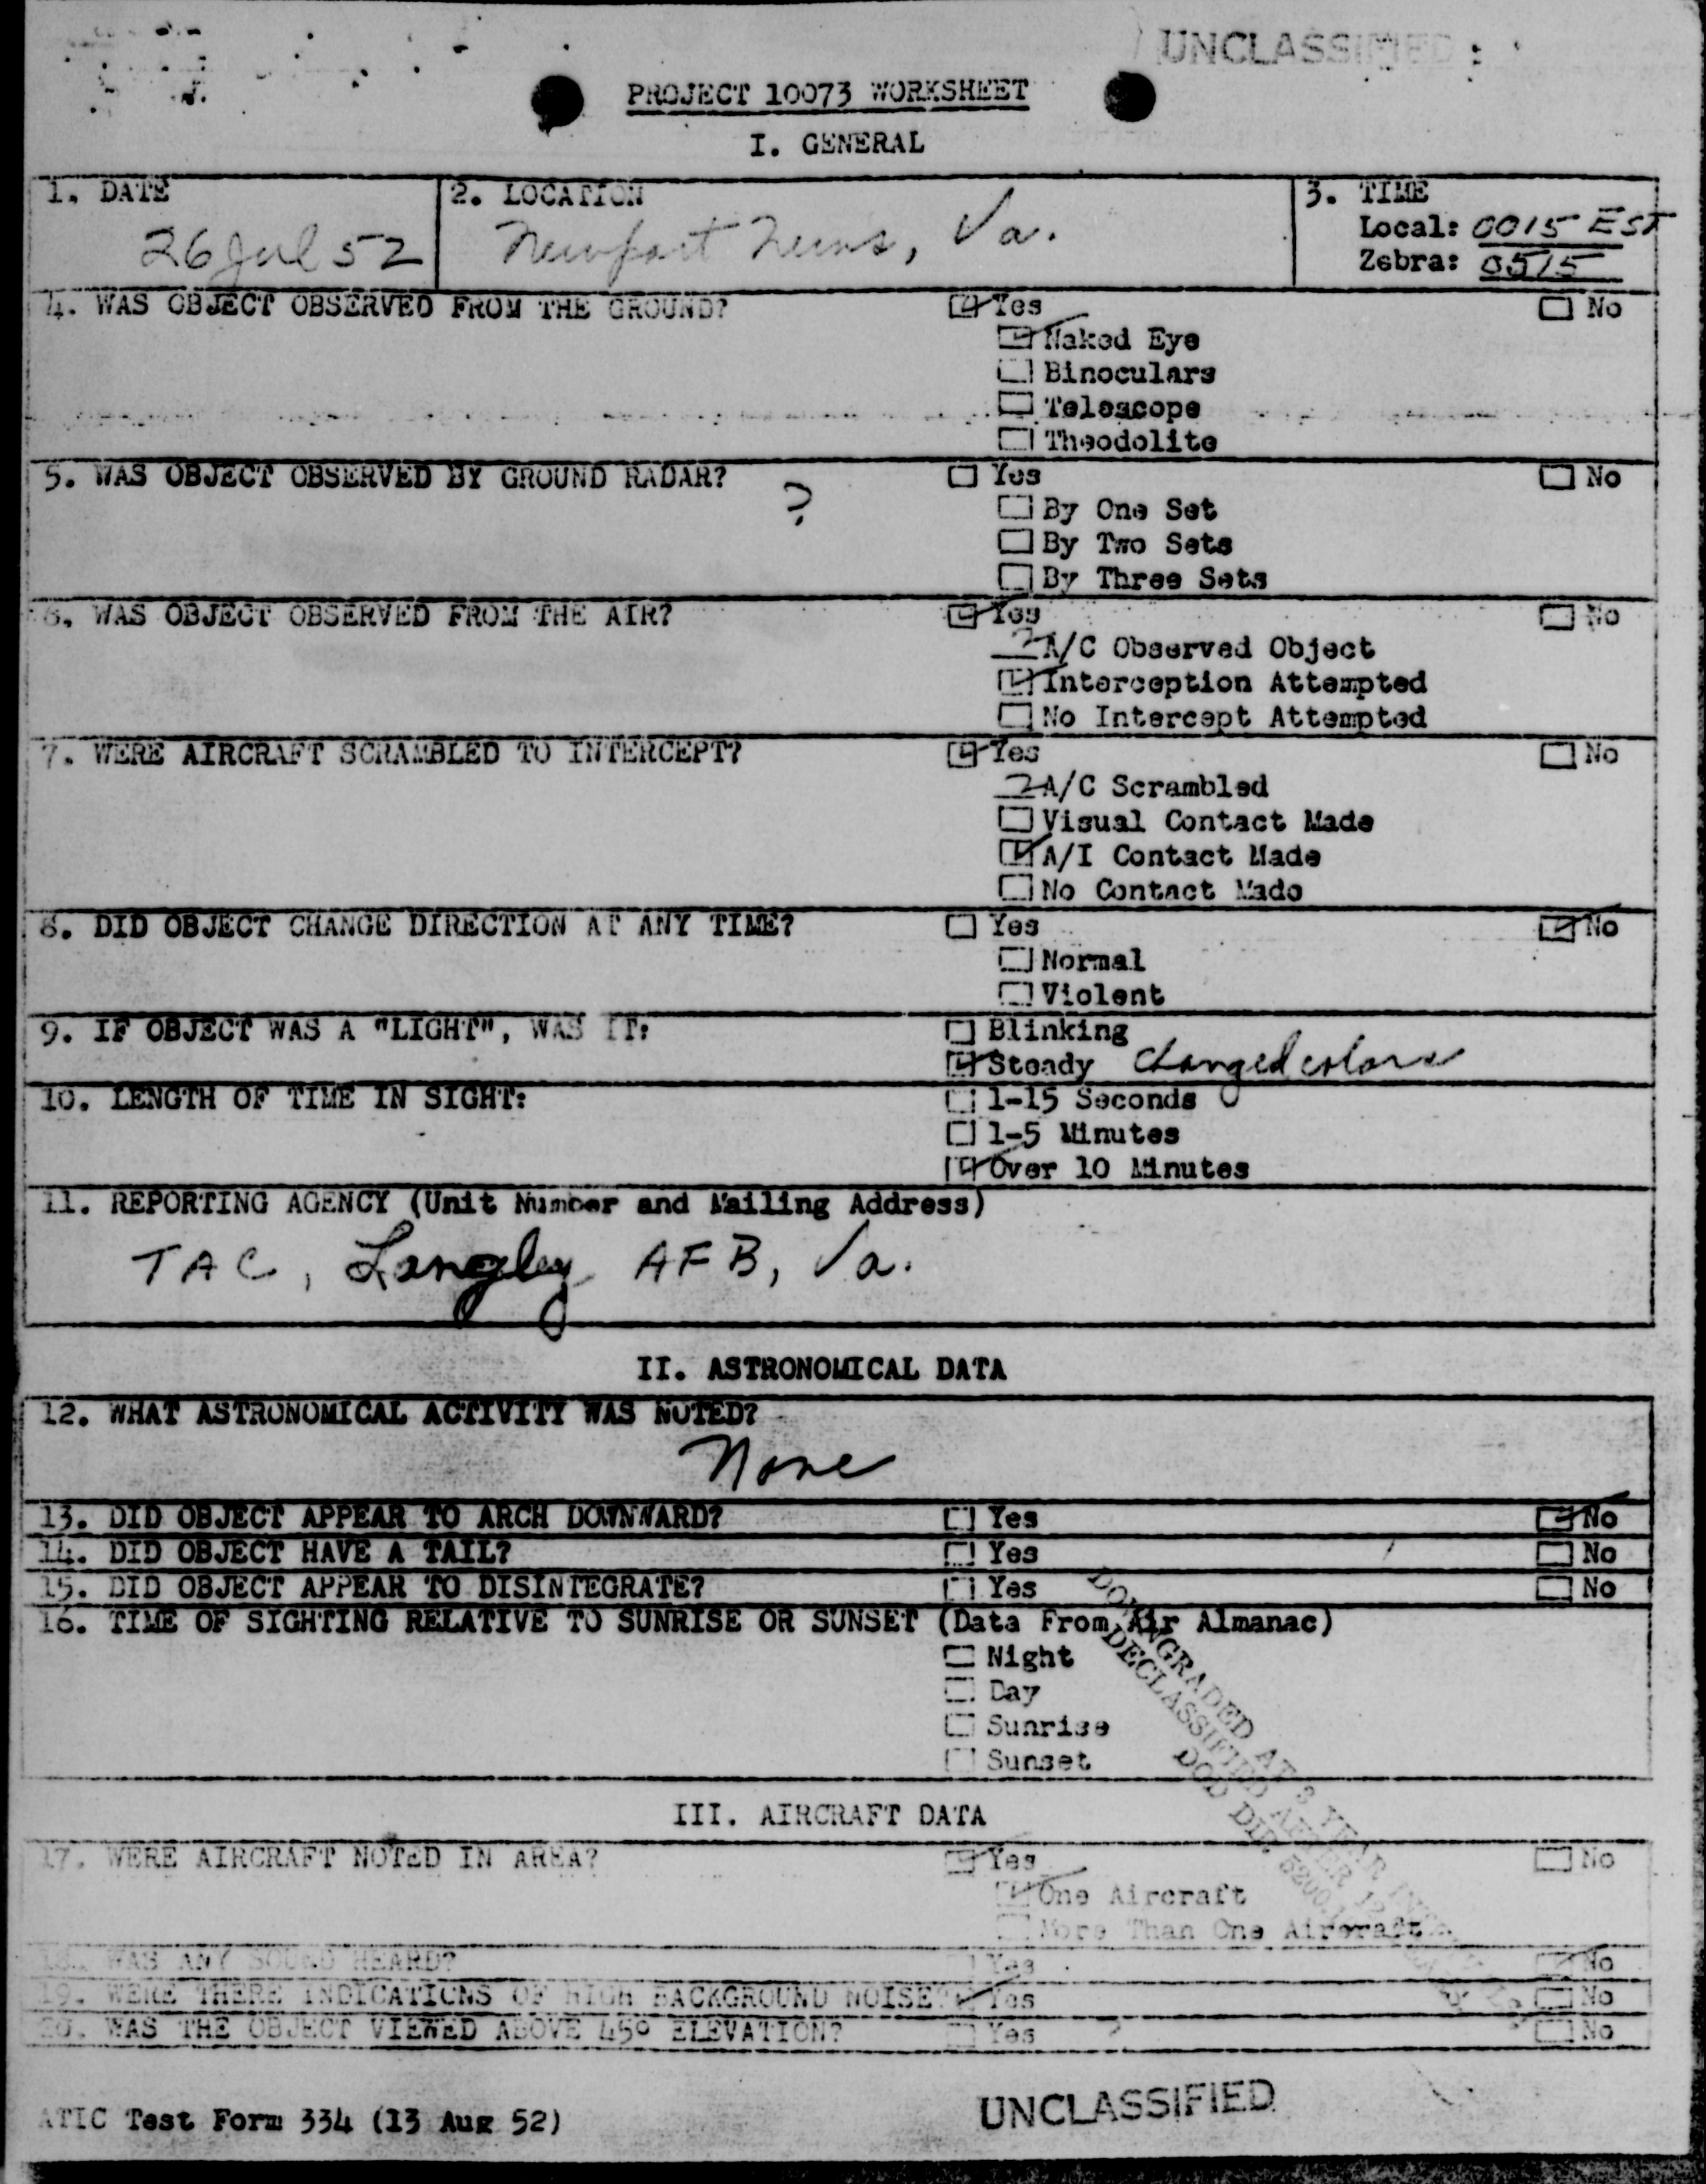 UNCLASSIFIED
PROJECT 10073 WORKSHEET
I. GENERAL
1. DATE
26 Jul 52
2. LOCATION
Newport News, Va.
3. TIME
Local: 0015 EST
Zebra: 0515
4. WAS OBJECT OBSERVED FROM THE GROUND? Yes No
Naked Eye
Binoculars
Telescope
Theodolite
5. WAS OBJECT OBSERVED BY GROUND RADAR? ? Yes No
By One Set
By Two Sets
By Three Sets
6. WAS OBJECT OBSERVED FROM THE AIR? Yes No
A/C Observed Object
Interception Attempted
No Intercept Attempted
7. WERE AIRCRAFT SCRAMBLED TO INTERCEPT? Yes No
2 A/C Scrambled
Visual Contact Made
A/I Contact Made
No Contact Made
8. DID OBJECT CHANGE DIRECTION AT ANY TIME? Yes No
Normal
Violent
9. IF OBJECT WAS A "LIGHT", WAS IT: Blinking
Steady Changed colors
10. LENGTH OF TIME IN SIGHT: 1-15 Seconds
1-5 Minutes
Over 10 Minutes
11. REPORTING AGENCY (Unit Number and Mailing Address)
TAC, Langley AFB, Va.
II. ASTRONOMICAL DATA
12. WHAT ASTRONOMICAL ACTIVITY WAS NOTED?
None
13. DID OBJECT APPEAR TO ARCH DOWNWARD? Yes No
14. DID OBJECT HAVE A TAIL? Yes No
15. DID OBJECT APPEAR TO DISINTEGRATE? Yes No
16. TIME OF SIGHTING RELATIVE TO SUNRISE OR SUNSET (Data From Air Almanac)
Night
Day
Sunrise
Sunset
DOWNGRADED AT 3 YEAR
DECLASSIFIED AFTER 12
DOD DIR 5200
III. AIRCRAFT DATA
17. WERE AIRCRAFT NOTED IN AREA? Yes No
One Aircraft
More Than One Aircraft
18. WAS ANY SOUND HEARD? Yes No
19. WERE THERE INDICATIONS OF HIGH BACKGROUND NOISE? Yes No
20. WAS THE OBJECT VIEWED ABOVE 45° ELEVATION? Yes ? No
ATIC Test Form 334 (13 Aug 52)
UNCLASSIFIED